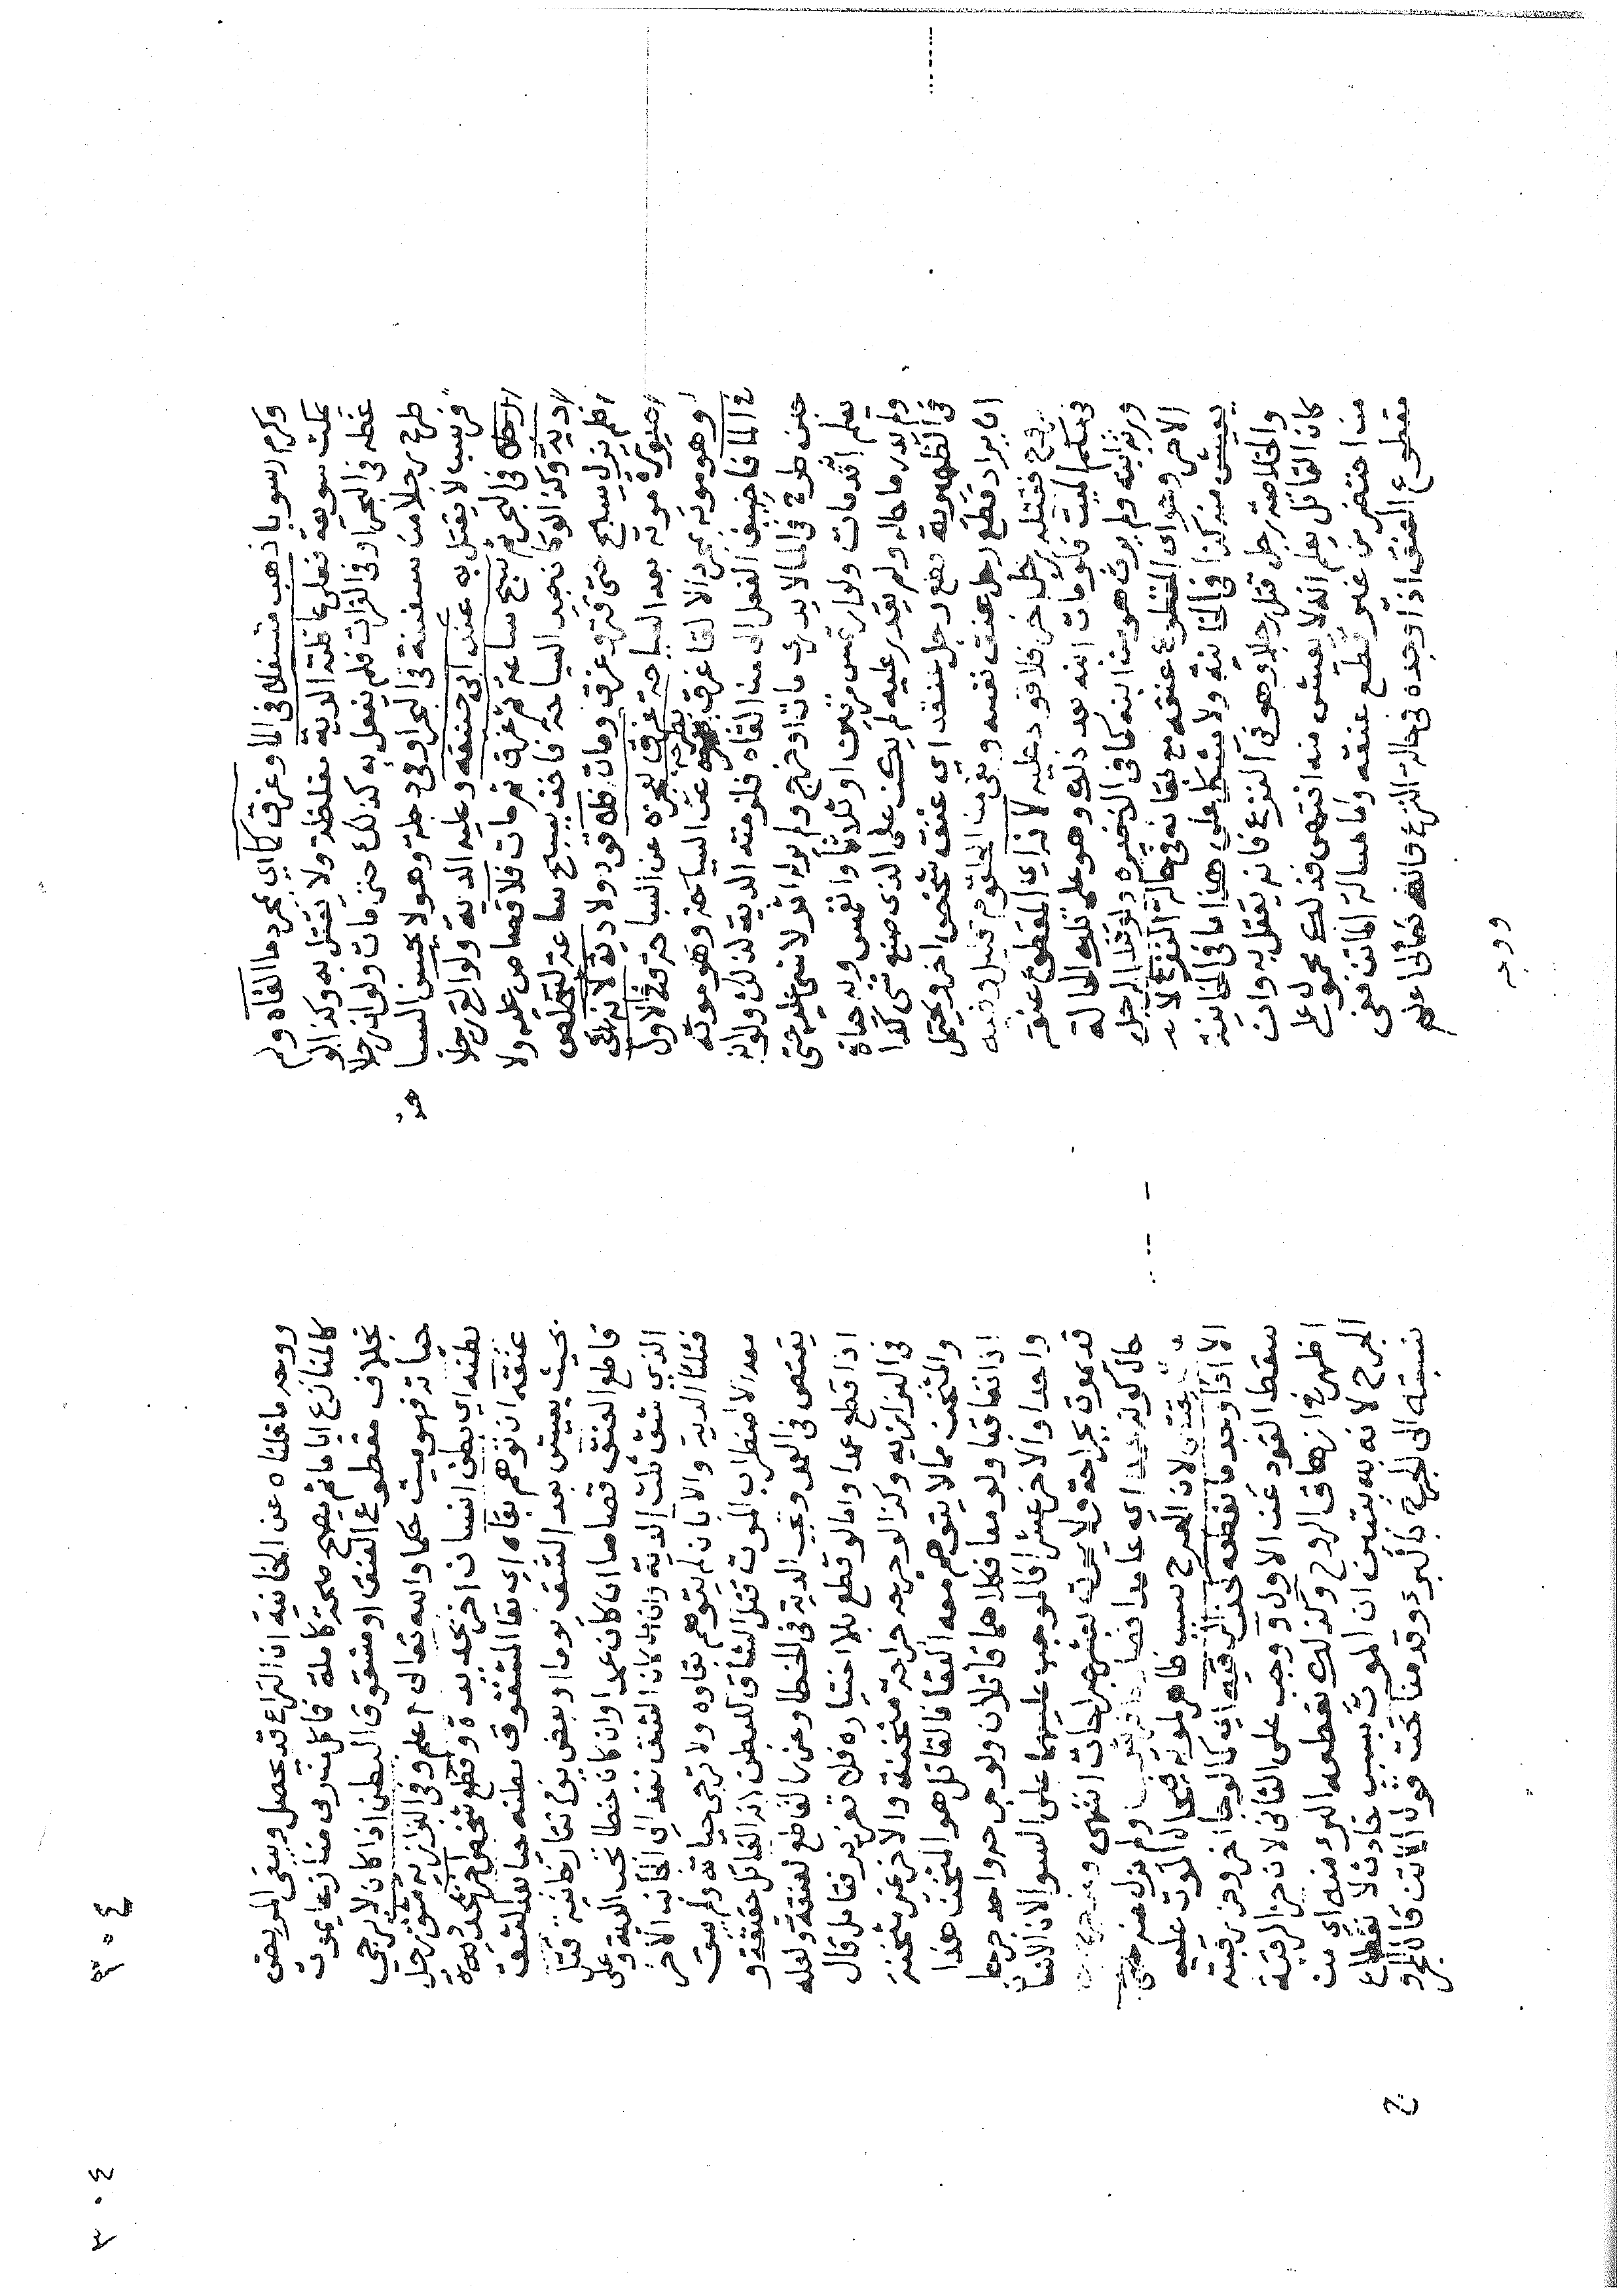 وكرم رسوبا ذهب متسفلا في الما وغرق كما اي بمجرد ما القاه ولم
يمكث سويعة فعلى عاقلته الدية مغلظة ولا يقتل به وكذا لو
غطه في البحر او في الفرات فلم يفعل به كذلك حتى مات ولو ان رجلا
طرح رجلا من سفينة في البحر او في دجلة وهو لا يحسن السبا
فرسب لا يقتل به عند ابي حنيفه وعليه الدية ولو القى رجلا
في البحر ثم سبح ساعة ثم غرق ثم مات فلا قصاص عليه ولا
دية وكذا لو كان جيد السباحة فاخذ يسبح ساعة ليتخلص
فلم يزل يسبح حتى فتر وغرق ومات فلا قود ولا دية لانه
موته بعد السباحة غرق لعجزه عن السباحة وفي الاول
وهو موته بمجرد الالقا غرق بطرحه عن السباحة وهو موته
في الما فاضيف الفعل الى من القاه فلزمته الدية لذلك ولو انه
حين طرح في الما لا يدرى مات او خرج ولم ير له اثر لا شي عليه حتى
يعلم انه قد مات ولو ارتمس مرتين او ثلاثا وانغمس وبه حياة
ولم يدر ما حاله ولم يقدر عليه لم يكن على الذي صنع شي كذا
في الظهيرية قطع رجل عنقه اي عنق شخص اخر ويحتمل
ان يراد قطع رجل عنق نفسه وبقي من الحلقوم قليل وفيه
روح فقتله رجل اخر فلا قود عليه لانه اي المقطوع عنقه
في حكم الميت فلو مات ابنه بعد ذلك وهو على تلك الحالة
ورثه ابنه ولم يرث هو من ابنه كما في الذخيره ولو قتله الرجل
الاخر وهو اي المقطوع عنقه مع بقائه في حالة النزع لانه
يعيش منه كذا في الخانية ولا يشكل على هذا ما في الخانية
والخلاصة رجل قتل رجلا وهو في النزع فانه يقتل به وان
كان القاتل يعلم انه لا يعيش منه انتهى فذلك محمول على
من احتضر من غير قطع عنقه واما مسالة المتن ففي
مقطوع العنق اذا وجده في حالة النزع فالله تعالى اعلم
ووجه
٣٠٤
ووجه ما نقلناه عن الخانية ان النزاع قد يحصل ويبقى المريض
كالمنازع اياما ثم يصح صحة كاملة فما كل من رى منازعا يموت
بخلاف مقطوع العنق او مشقوق البطن اذا كان لا ترجى
حياته فهو ميت حكما والله تعالى اعلم وفي البزازيه شق رجل
بطنه اي بطن انسان اخر بحديدة وقطع شخص اخر بحديدة
عنقه ان توهم بقاه اي بقا المشقوق بطنه حيا بعد الشق
بحيث يعيش بعد الشق يوما او بعض يوم تتارخانية قتل
قاطع العنق قصاصا ان كان عمدا وان كان خطا تجب الدية وعلى
الذي شق ثلث الدية وان كان الشق نفذ الى الجانب الاخر
فثلثا الدية والا بان لم يتوهم بقاوه ولا ترجى حياته ولم يبق
معه الا اضطراب الموت قتل الشاق للبطن انه القاتل حقيقة و
يقتص في العمد وتجب الدية في الخطا وعزر القاطع لعنقه ولعله
اذا قطع عمدا واما لو قطع بلا اختياره فلا تعزير فتامل قال
في البزازيه وكذا لو جرحه جراحة مثخنة والاخر غير مثخنة
والمثخن مما لا يتوهم معه البقا فالقاتل هو المثخن هذا
اذا تعاقبا ولو معا فكلاهما قاتلان ولو جرحه واحد جرحا
واحدا والاخر عشرا فالموجب عليهما على السوا لان الانسان
قد يموت بجراحة ولا يموت بعشر جراحات انتهى
حال كونه عمدا اي عامدا ولم يزل منه حتى
لان الجرح سبب ظاهر لموته فيحال الموت عليه
الا اذا وجد ما يقطعه اي كما لو جا اخر وحز رقبته
سقط القود عن الاول ووجب على الثاني لان حز الرقبة
اظهر في ازهاق الروح وكذلك يقطعه البرء منه اي من
الجرح لانه به يتبين ان الموت بسبب حادث لا نقطاع
نسبته الى الجرح بالبرء وقد مناخت قول المتن فان الجر